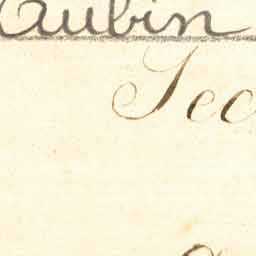 Aubin
Sec